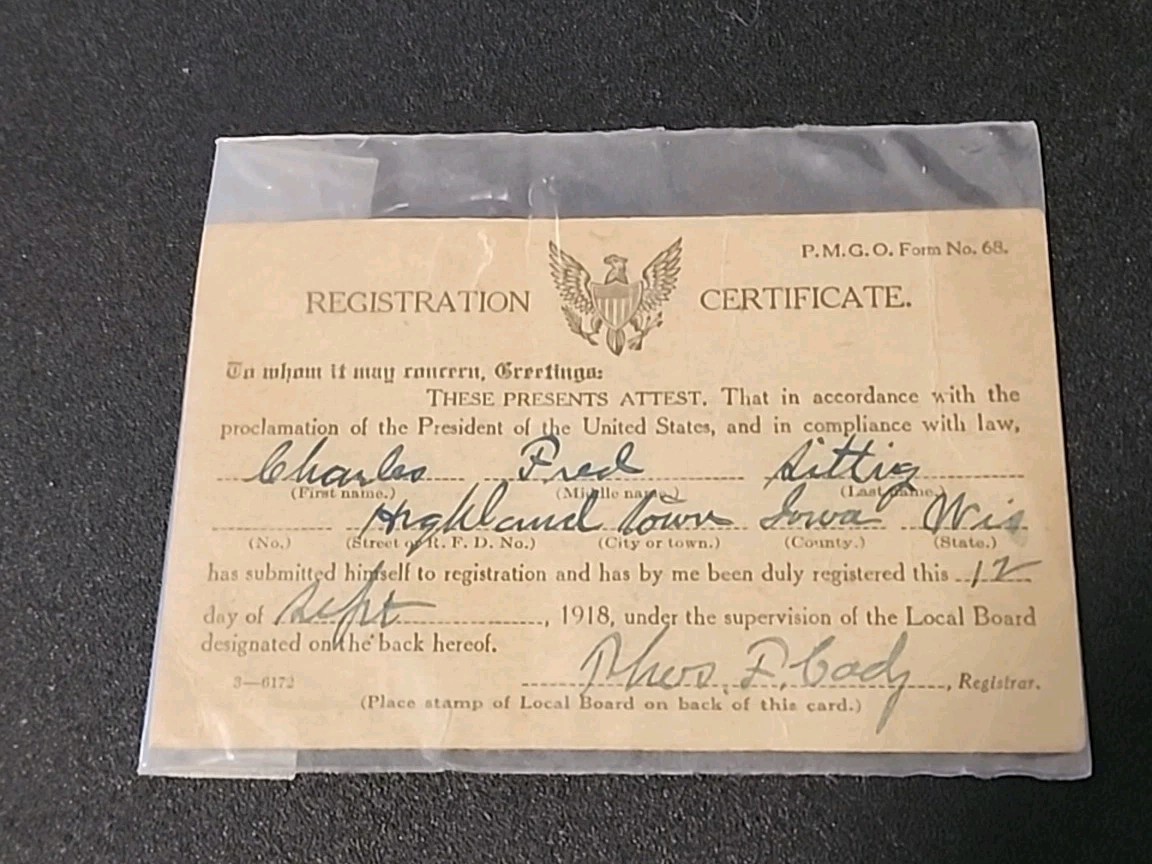 P.M.G.O. Form No. 68.
REGISTRATION CERTIFICATE.
To whom it may concern, Greetings:
THESE PRESENTS ATTEST, That in accordance with the
proclamation of the President of the United States, and in compliance with law,
Charles Fred Sittig
(First name.) (Middle name.) (Last name.)
Highland Town Iowa Wis
(No.) (Street or R. F. D. No.) (City or town.) (County.) (State.)
has submitted himself to registration and has by me been duly registered this 12
day of Sept, 1918, under the supervision of the Local Board
designated on the back hereof.
Thos. F. Cody, Registrar.
3—6172
(Place stamp of Local Board on back of this card.)